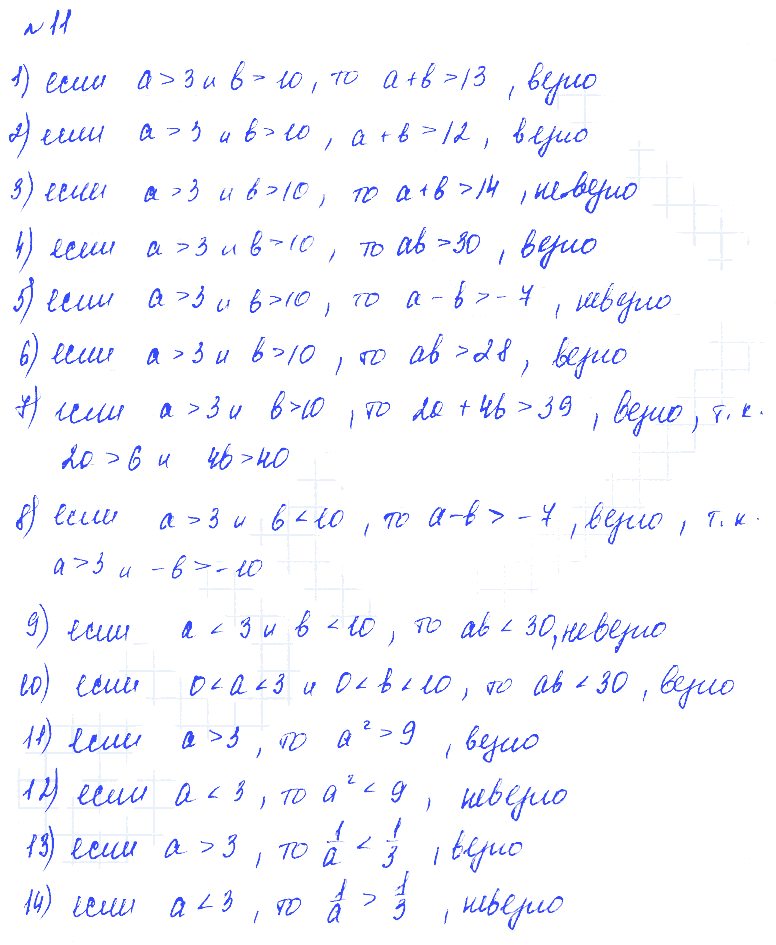 № 11
1) если a > 3 и b > 10, то a + b > 13, верно
2) если a > 3 и b > 10, a + b > 12, верно
3) если a > 3 и b > 10, то a + b > 14, неверно
4) если a > 3 и b > 10, то ab > 30, верно
5) если a > 3 и b > 10, то a - b > -7, неверно
6) если a > 3 и b > 10, то ab > 28, верно
7) если a > 3 и b > 10, то 2a + 4b > 39, верно, т.к.
2a > 6 и 4b > 40
8) если a > 3 и b < 10, то a - b > -7, верно, т.к.
a > 3 и -b > -10
9) если a < 3 и b < 10, то ab < 30, неверно
10) если 0 < a < 3 и 0 < b < 10, то ab < 30, верно
11) если a > 3, то a² > 9, верно
12) если a < 3, то a² < 9, неверно
13) если a > 3, то 1/a < 1/3, верно
14) если a < 3, то 1/a > 1/3, неверно